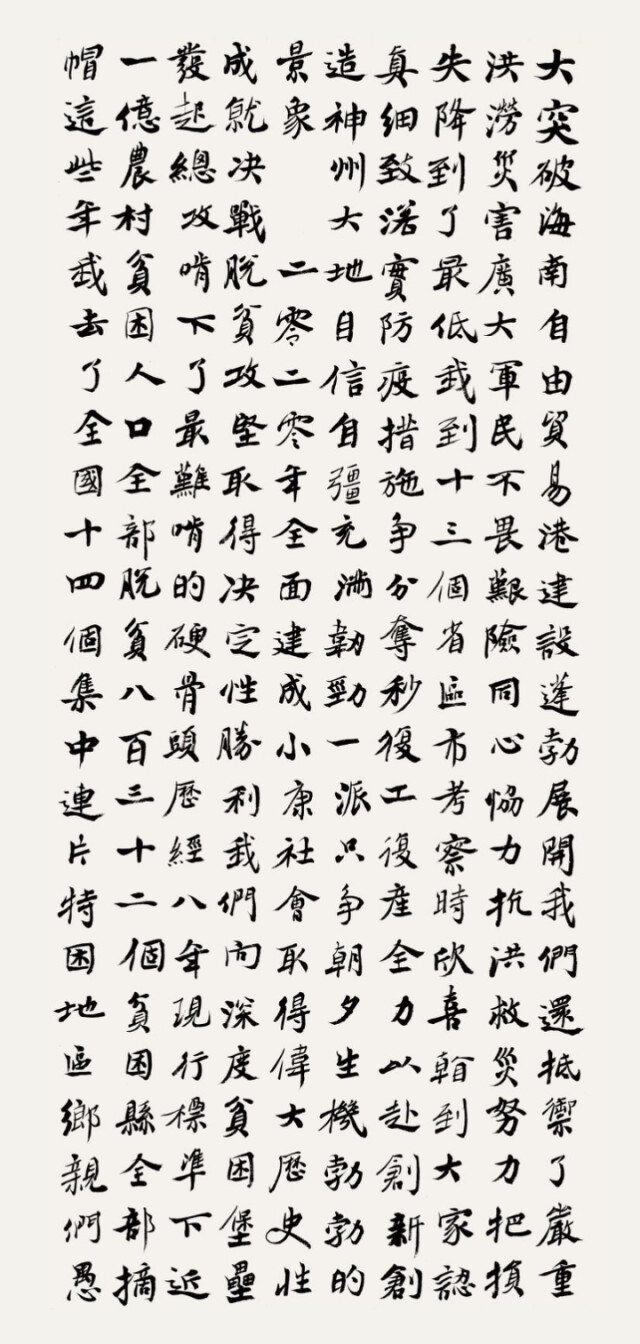 大突破海南自由貿易港建設蓬勃展開我們還抵禦了嚴重
洪澇災害廣大軍民不畏艱險同心恊力抗洪救災努力把損
失降到了最低我到十三個省區市考察時欣喜看到大家認
真細致落實防疫措施争分奪秒復工復產全力以赴創新創
造神州大地自信自彊充滿韌勁一派只争朝夕生機勃勃的
景象 二零二零年全面建成小康社會取得偉大歷史性
成就决戰脱貧攻堅取得决定性勝利我們向深度貧困堡壘
發起總攻啃下了最難啃的硬骨頭歷經八年現行標準下近
一億農村貧困人口全部脱貧八百三十二個貧困縣全部摘
帽這些年我去了全國十四個集中連片特困地區鄉親們愚